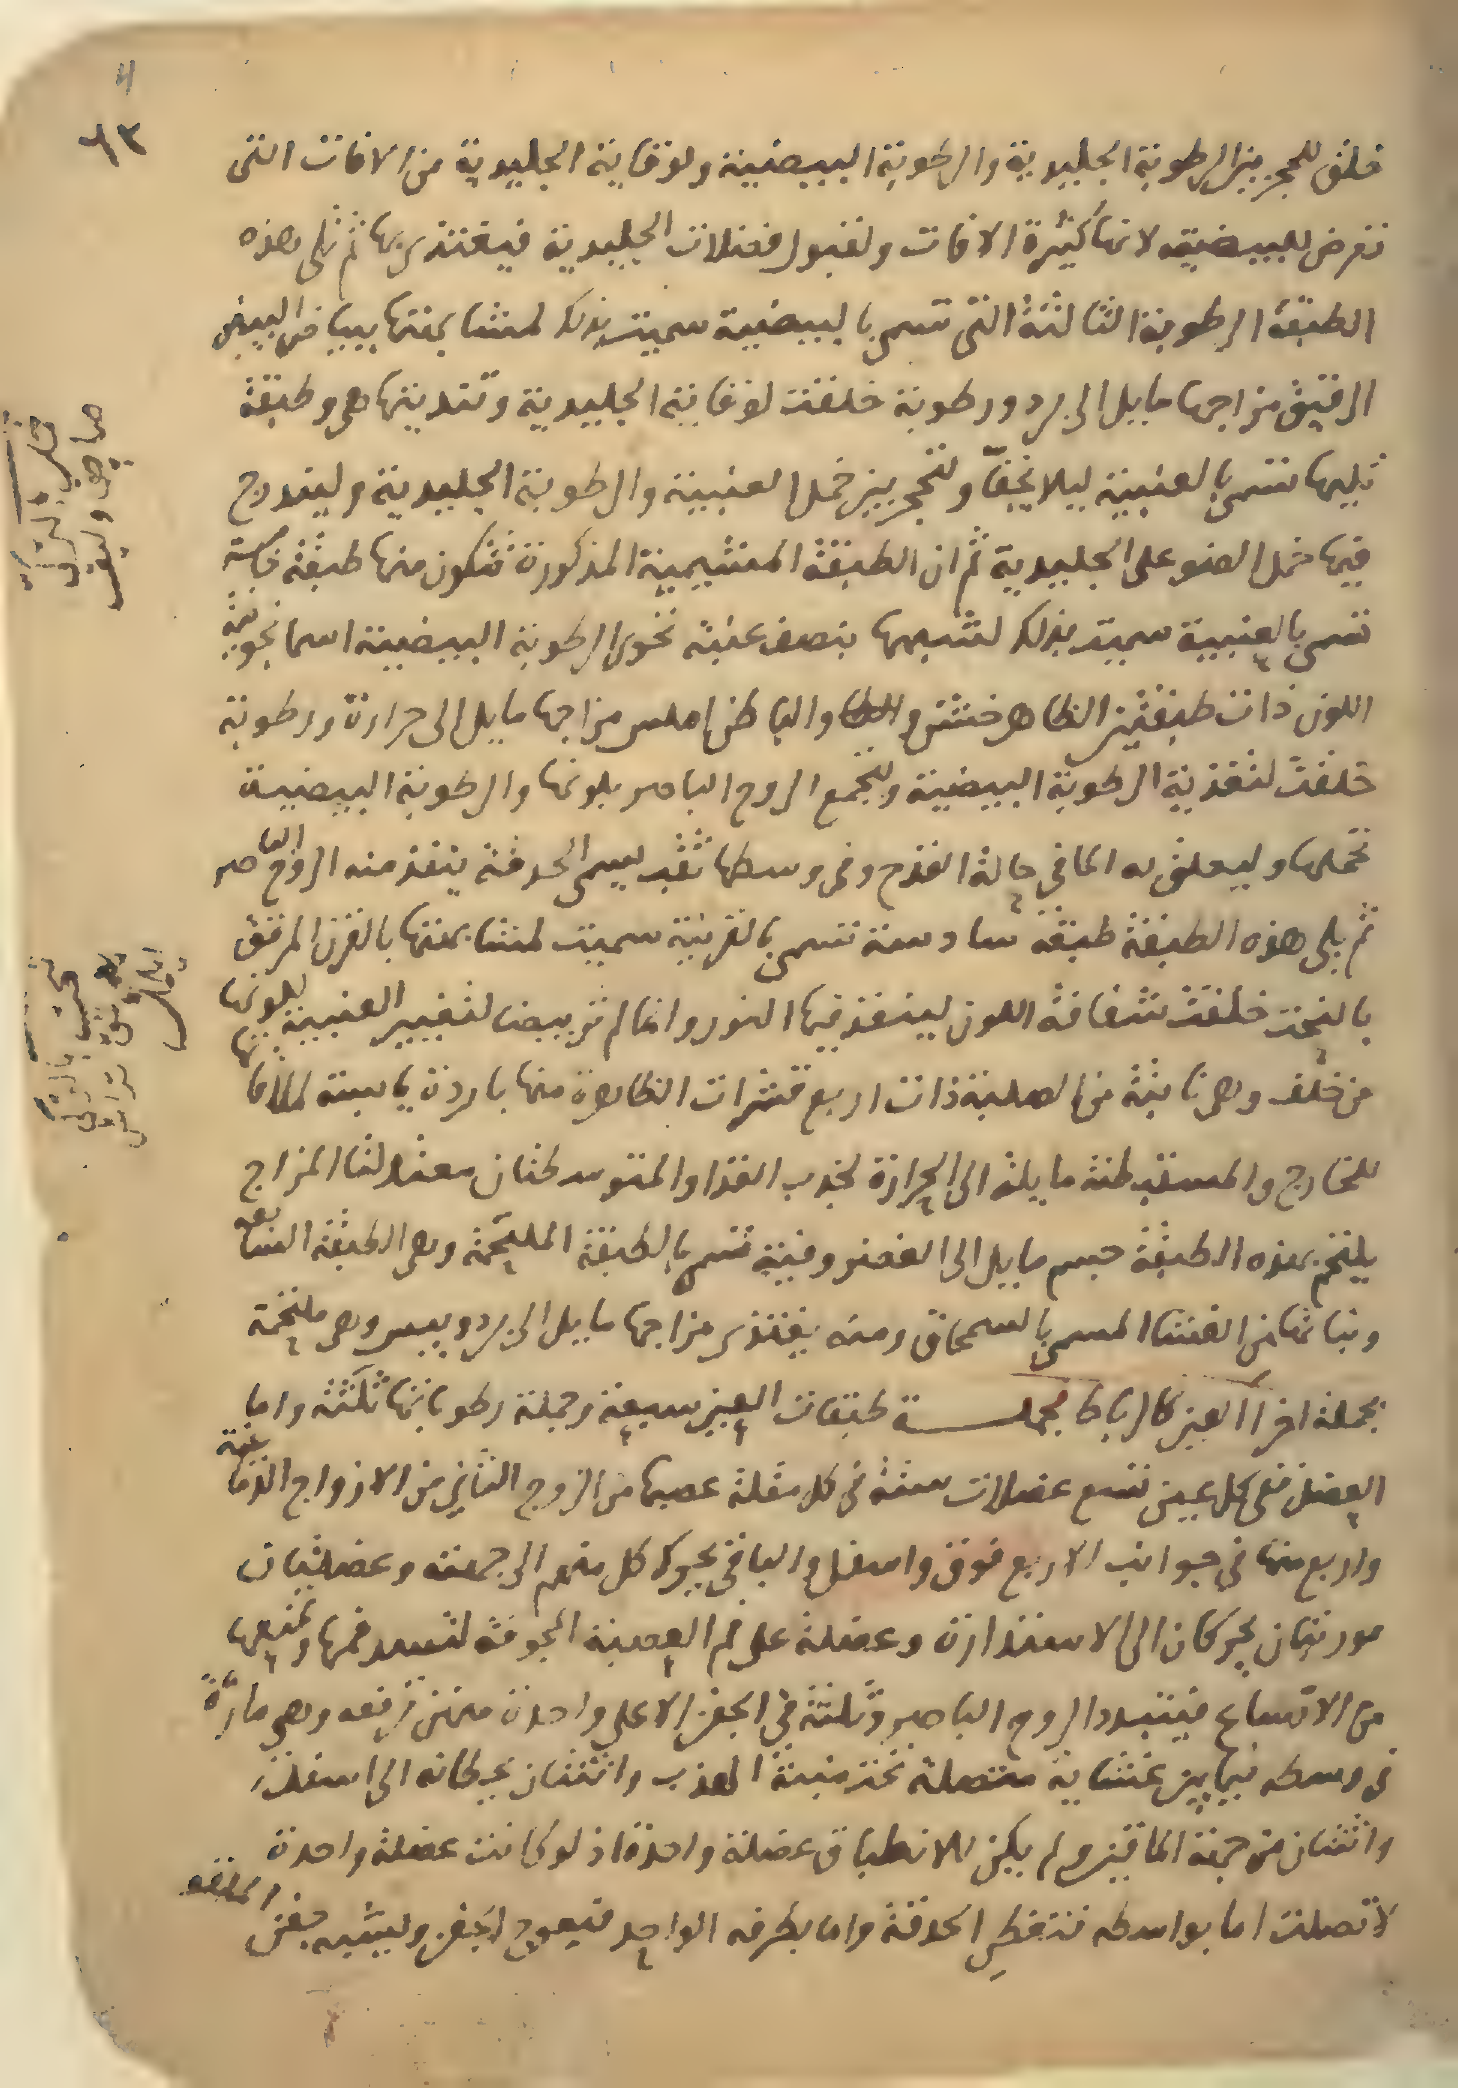 ٦٣
خلق للحجز بين الرطوبة الجليدية والرطوبة البيضية ولوقاية الجليدية من الافات التى
تعرض للبيضية لانها كثيرة الافات ولقبول فضلات الجليدية فيغتذى بها ثم تلى هذه
الطبقة الرطوبة الثالثة التى تسمى بالبيضية سميت بذلك لمشابهتها ببياض البيض
الرقيق مزاجها مايل الى برد ورطوبة خلقت لوقاية الجليدية وتنديتها هى وطبقة
تليها تسمى بالعنبية ليلا يجفا ولتحجز بين خمل العنبية والرطوبة الجليدية وليتدرج
فيها حمل الضو على الجليدية ثم ان الطبقة المشيمية المذكورة تتكون منها طبقة خامسة
تسمى بالعنبية سميت بذلك لشبهها بنصف عنبة تحوى الرطوبة البيضية اسمانجونية
اللون ذات طبقتين الظاهر خشن والباطن املس مزاجها مايل الى حرارة ورطوبة
خلقت لتغذية الرطوبة البيضية ولتجمع الروح الباصر بلونها والرطوبة البيضية
تخملها وليعلق به الما فى حالة القدح وفى وسطها ثقب يسمى الحدقة ينفذ منه الروح الباصر
ثم يلى هذه الطبقة طبقة سادسة تسمى بالقرنية سميت لمشابهتها بالقرن المرقق
بالنحت خلقت شفافة اللون لينفذ فيها النور وانما لم تر بيضا لتغيير العنبية للونها
من خلف وهى نابتة من الصلبة ذات اربع قشرات الظاهرة منها باردة يابسة لملاقاتها
للخارج والمستبطنة مايلة الى الحرارة لجذب الغذا والمتوسطتان معتدلتا المزاج
يلتحم بهذه الطبقة جسم مايل الى الغضروفية تسمى بالطبقة الملتحمة وهى الطبقة السابعة
ونباتها من الغشا المسمى بالسمحاق ومنه يغتذى مزاجها مايل الى برد ويبس وهى ملتحمة
بجملة اجزا العين كالرباط فجملة طبقات العين سبعة وجملة رطوباتها ثلثة واما
العضل ففى كل عين تسع عضلات ستة فى كل مقلة عصبها من الزوج الثانى من الازواج الدماغية
واربع منها فى جوانب الاربع فوق واسفل والباقى يحرك كل منهم الى جهته وعضلتان
موربتان يحركان الى الاستدارة وعضلة على فم العصبة المجوفة لتسد فمها وتمنعها
من الاتساع فيتبدد الروح الباصر وثلثة فى الجفن الاعلى واحدة منهن ترفعه وهى مارة
فى وسطه فيما بين غشايه متصلة تحت منبت الهدب واثنتان يحركانه الى اسفل
واثنتان من جهة الماقين ولم يكن للانطباق عضلة واحدة اذ لو كانت عضلة واحدة
لاتصلت اما بواسطه فتغطى الحدقة واما بطرفه الواحد فيعوج الجفن ويشبه جفن